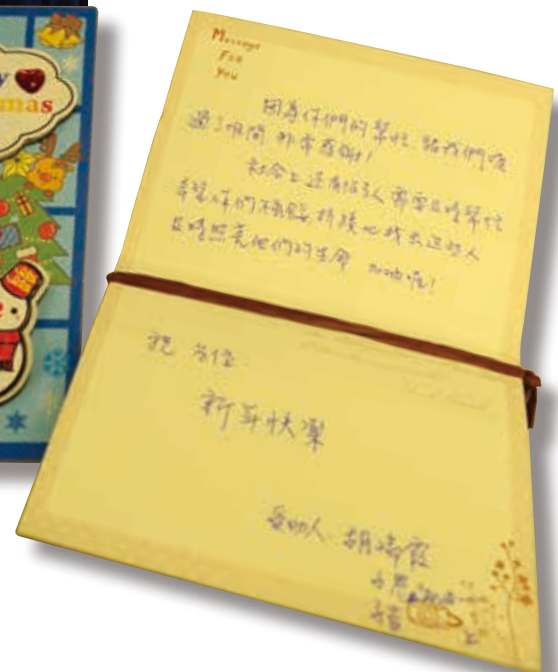 y
mas
Message
For
You
因為你們的幫忙 給我們度
過了難關 非常感謝!
社會上還有很多人需要及時幫忙
希望你們不間斷 持續地找出這些人
及時照亮他們的生命 加油喔!
祝 各位
新年快樂
受助人 胡瑞霞
上